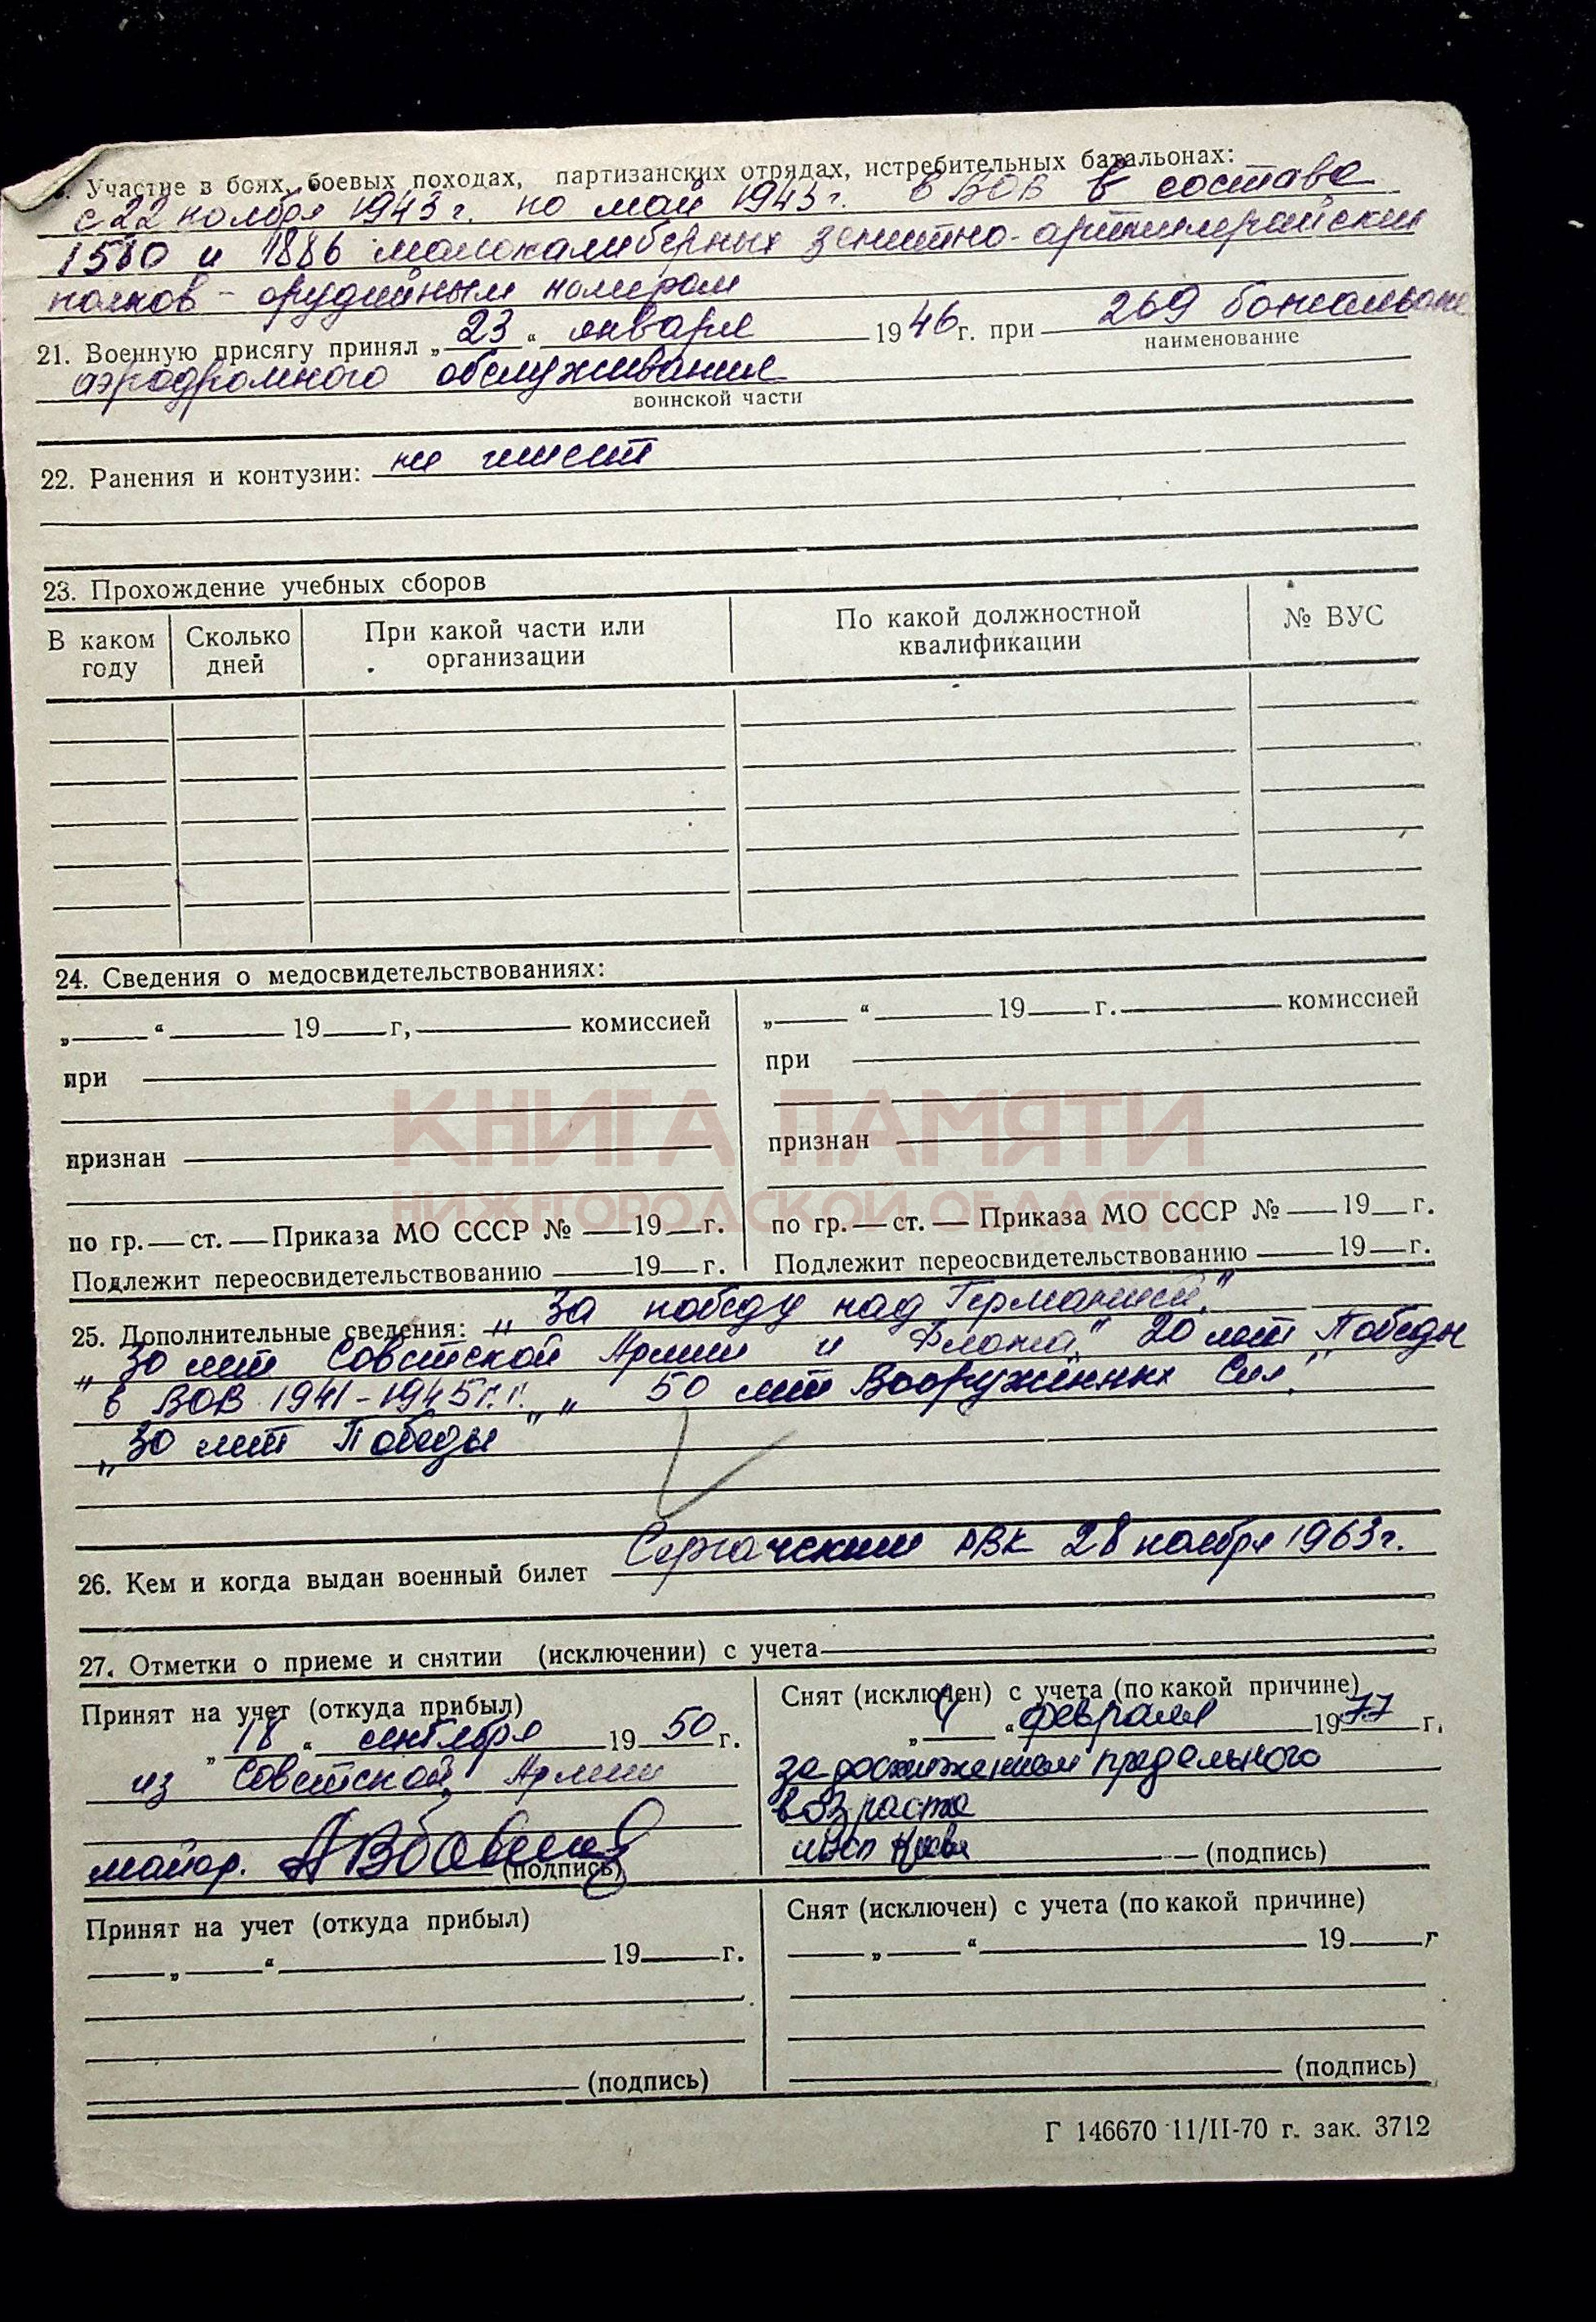 . Участие в боях, боевых походах, партизанских отрядах, истребительных батальонах:
с 22 ноября 1943 г. по май 1945 г. в ВОВ в составе
1580 и 1886 малокалиберных зенитно-артиллерийских
полков - орудийным номером
21. Военную присягу принял „23“ января 1946 г. при 269 батальоне
наименование
аэродромного обслуживания
воинской части
22. Ранения и контузии: не имеет
23. Прохождение учебных сборов
В каком году Сколько дней При какой части или организации По какой должностной квалификации № ВУС
24. Сведения о медосвидетельствованиях:
„ “ 19 г, комиссией „ “ 19 г. комиссией
при при
КНИГА ПАМЯТИ
признан признан
НИЖЕГОРОДСКОЙ ОБЛАСТИ
по гр. — ст. — Приказа МО СССР № — 19 — г. по гр. — ст. — Приказа МО СССР № — 19 — г.
Подлежит переосвидетельствованию 19 — г. Подлежит переосвидетельствованию 19 — г.
25. Дополнительные сведения: „За победу над Германией",
„30 лет Советской Армии и Флота", 20 лет Победы
в ВОВ 1941-1945 г.г.", „50 лет Вооружённых Сил",
„30 лет Победы"
26. Кем и когда выдан военный билет Сергачским РВК 28 ноября 1963 г.
27. Отметки о приеме и снятии (исключении) с учета
Принят на учет (откуда прибыл) Снят (исключен) с учета (по какой причине)
„18“ сентября 1950 г. „4“ февраля 1977 г.
из Советской Армии за достижением предельного
возраста
майор. (подпись) (подпись)
Принят на учет (откуда прибыл) Снят (исключен) с учета (по какой причине)
„ “ 19 г. „ “ 19 г
(подпись) (подпись)
Г 146670 11/II-70 г. зак. 3712